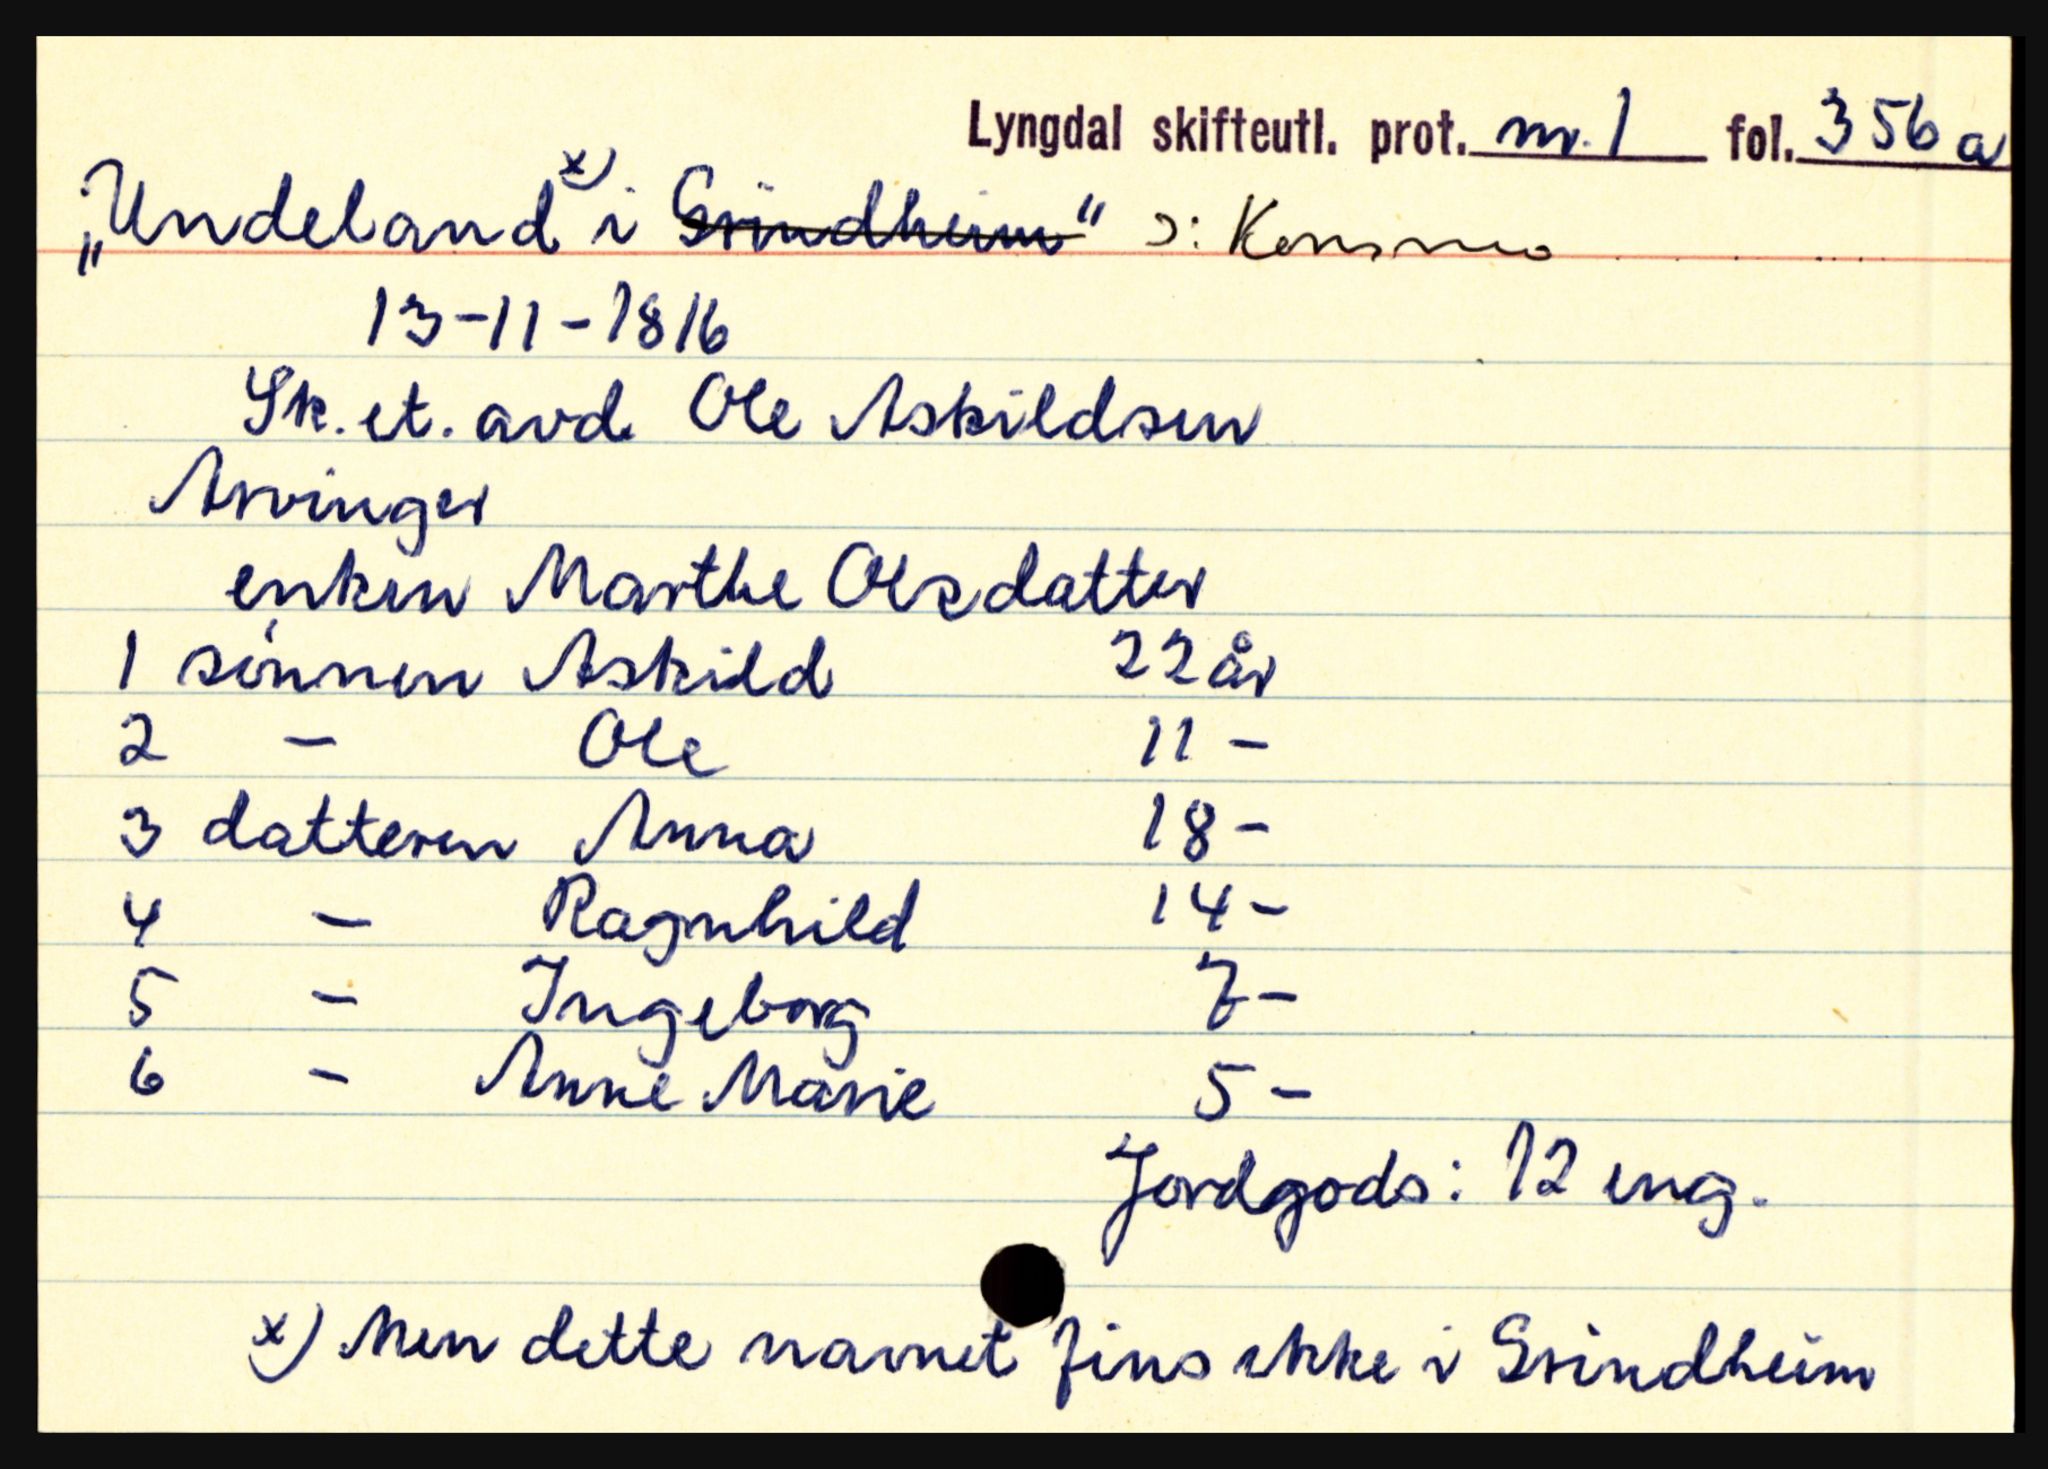 Lyngdal skifteutl. prot. nr. 1 fol. 356 a
„Undeland x) i Grindheim" ɔ: Konsmo
13-11-1816
Sk. et. avd. Ole Askildsen
Arvinger
enken Marthe Olsdatter
1 sønnen Askild 22 år
2 - Ole 11 -
3 datteren Anna 18 -
4 - Ragnhild 14 -
5 - Ingeborg 7 -
6 - Anne Marie 5 -
Jordgods: 12 eng.
x) Men dette navnet fins ikke i Grindheim